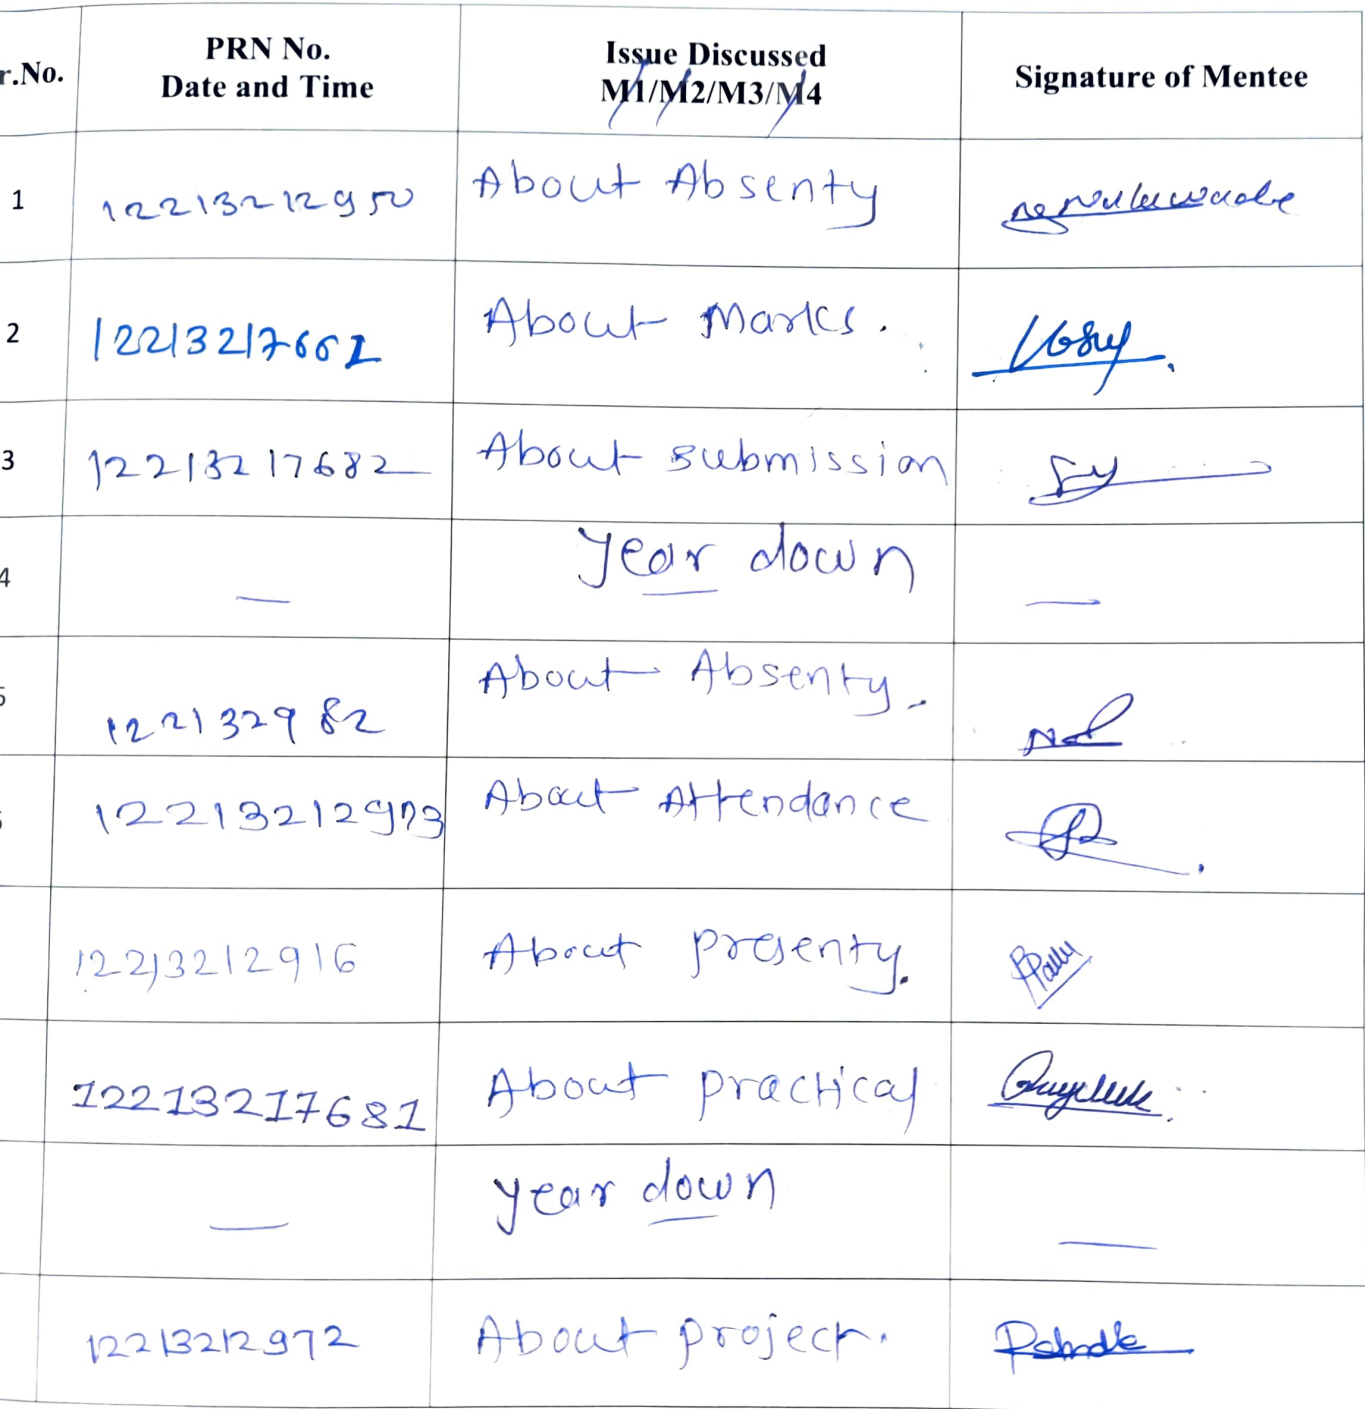 r.No.
PRN No.
Date and Time
Issue Discussed
M1/M2/M3/M4
Signature of Mentee
1
12213212950
About Absenty
2
12213217661
About Marks.
3
12213217682
About submission
4
—
year down
—
5
122132982
About Absenty.
12213212973
About Attendance
12213212916
About presenty.
12213217681
About practical
—
year down
—
12213212972
About project.